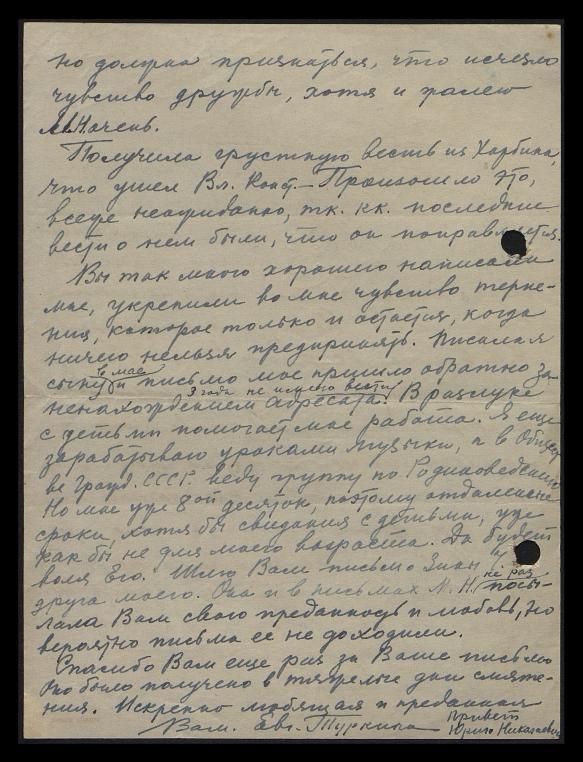 но должна признаться, что исчезло
чувство дружбы, хотя и жалею
М.Н. очень.
Получила грустную весть из Харбина,
что ушел Вл. Конст. – Произошло это,
всеже неожиданно, тк. кк. последние
вести о нем были, что он поправляется.
Вы так много хорошего написали
мне, укрепили во мне чувство терпе-
ния, которое только и остается, когда
ничего нельзя предпринять. Писала я
сыну и письмо мое пришло обратно за
в мае
ненахождением адресата.
3 года не имею вестей
В разлуке
с детьми помогает мне работа. Я еще
зарабатываю уроками музыки, а в Общест
ве Гражд. СССР. веду группу по Родиноведению
Но мне уже 8ой десяток, поэтому отдаленные
сроки, хотя бы свидания с детьми, уже
как бы не для моего возраста. Да будет
воля Его. Шлю Вам письмо Зины
друга моего. Она и в письмах М. Н. не раз посы-
лала Вам свою преданность и любовь, но
вероятно письма ее не доходили.
Спасибо Вам еще раз за Ваше письмо
Оно было получено в тяжелые дни смяте-
ния. Искренно любящая и преданная
Вам. Евг. Туркина
Привет
Юрию Николаевичу